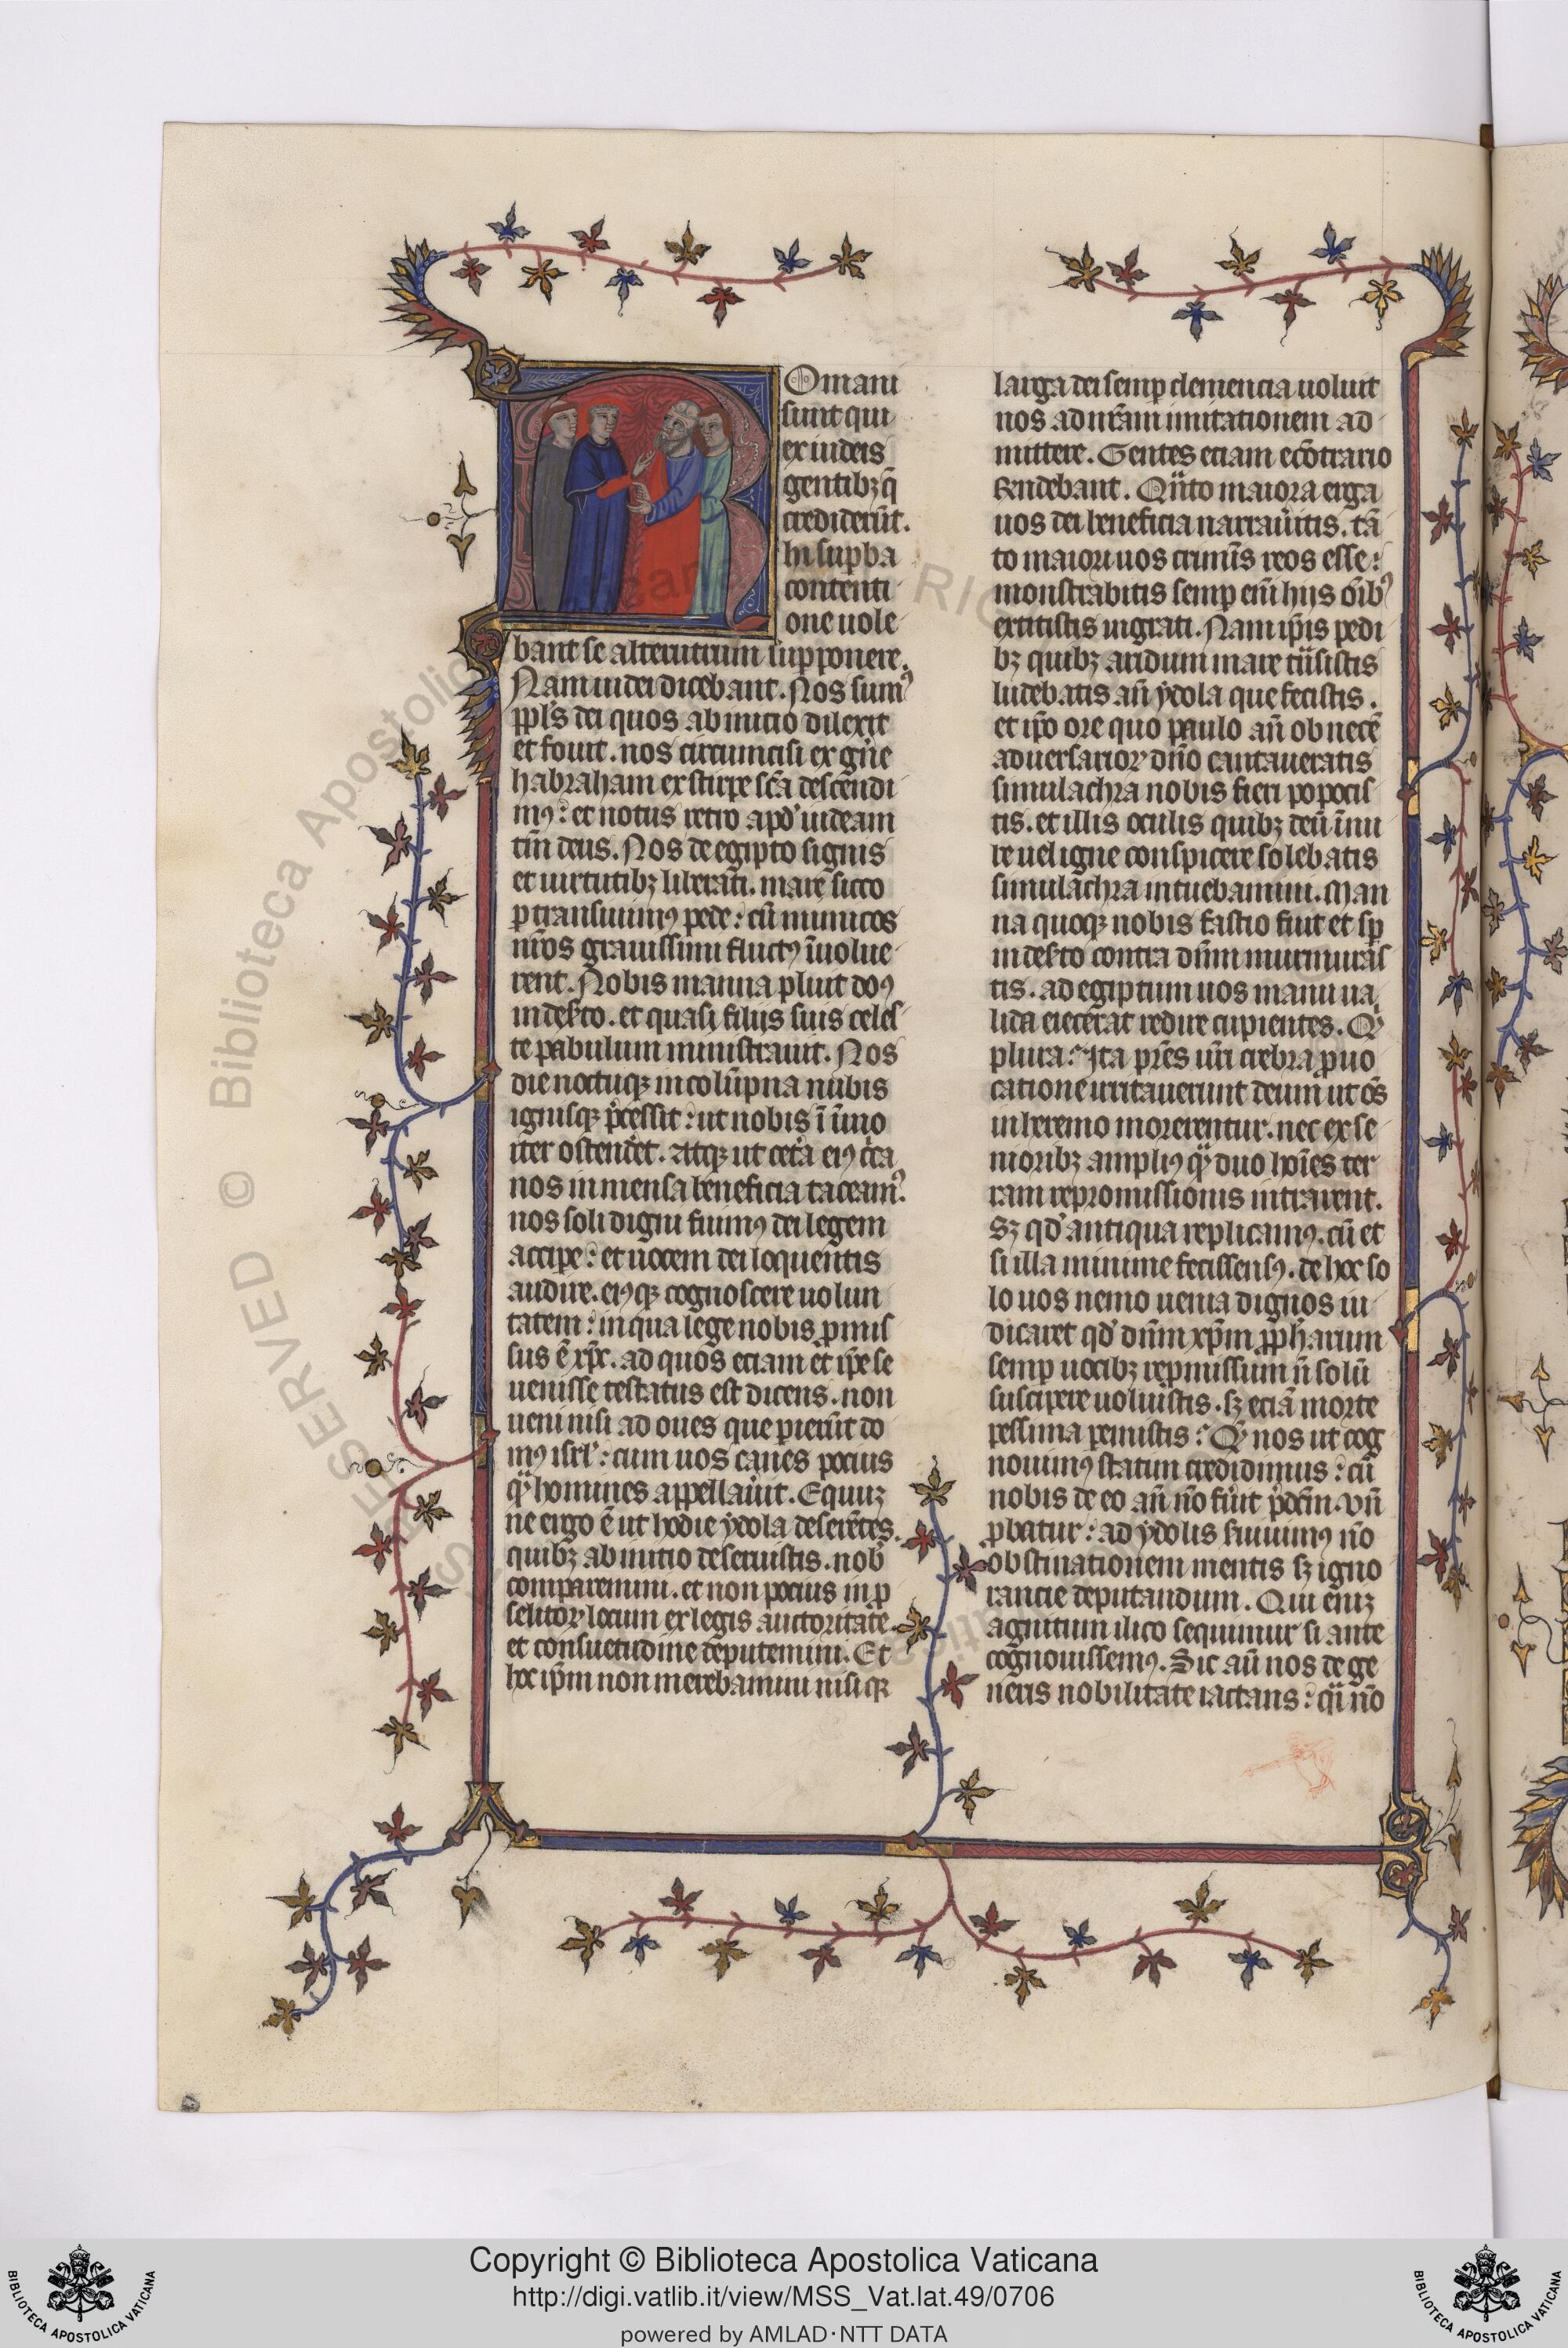 Romani
sunt qui
ex iudeis
gentibꝫq̃
crediderũt.
hi suꝑba
contenti
one uole
bant se alterutrum supponere.
Nam iudei dicebant. Nos sumꝰ
ppl's dei quos ab inicio dilexit
et fouit. nos circumcisi ex gñe
habraham ex stirpe scã descendi
mꝰ: et notus retro apd' iudeam
tm̃ deus. Nos de egipto signis
et uirtutibꝫ liberati. mare sicco
ꝑtransiuimꝰ pede: cũ inimicos
nr̃os grauissimi fluctꝰ ĩuolue
rent. Nobis manna pluit dñs
in desʼto. et quasi filiis suis celes
te pabulum ministrauit. Nos
die noctuqꝫ in colũpna nubis
ignisqꝫ p̃cessit: ut nobis ĩ ĩuio
iter ostenderet. atqꝫ ut cetʼa eiꝰ cʼca
nos inmensa beneficia taceamꝰ.
nos soli digni fuimꝰ dei legem
accipe: et uocem dei loquentis
audire. eiꝰqꝫ cognoscere uolun
tatem: in qua lege nobis ꝓmis
sus ẽ xp̃c. ad quos eciam et ip̃e se
uenisse testatus est dicens. non
ueni nisi ad oues que perierũt do
mꝰ isrl': cum uos canes pocius
q̃ homines appellauʼit. Equũ
ne ergo ẽ ut hodie ydola deserẽtes.
quibꝫ ab inicio deseruistis. nob'
comparemini. et non pocius in ꝓ
selitoꝝ locum ex legis auctoritate
et consuetudine deputemini. Et
hoc ip̃m non merebamini nisi qꝛ
larga dei semꝑ clemencia uoluit
uos ad nr̃am imitationem ad
mittere. Gentes eciam ecõtrario
rñdebant. Q̃nto maiora erga
uos dei beneficia narrauʼitis. tã
to maiori uos crimĩs reos esse:
monstrabitis semꝑ enĩ hiis õib'ꝰ
extitistis ingrati. Nam ip̃is pedi
bꝫ quibꝫ aridum mare trãsistis
ludebatis añ ydola que fecistis.
et ip̃o ore quo paulo añ ob necẽ
aduersarioꝝ dño cantaueratis
simulachra nobis fieri poposcis
tis. et illis oculis quibꝫ deũ ĩ nu
be uel igne conspicere solebatis
simulachra intuebamini. Man
na quoqꝫ nobis fastidio fuit et sꝑ
in desʼto contra dñm murmuras
tis. ad egiptum uos manu ua
lida eiecerat redire cupientes. Qͥd
plura: Ita pr̃es ur̃i crebra ꝓuo
catione irritauerunt deum ut oẽs
in heremo morerentur. nec ex se
nioribꝫ ampliꝰ q̃ duo hoĩes ter
ram repromissionis intrarent.
Sꝫ qd' antiqua replicamꝰ. cũ et
si illa minime fecissetꝭ. de hoc so
lo uos nemo uenia dignos iu
dicaret qd' dñm xp̃m ꝓph'arum
semꝑ uocibꝫ repmissum ñ solũ
suscipere uoluistis. sꝫ eciã morte
pessima peremistis: Qͥ nos ut cog
nouimꝰ statim credidimus: cũ
nobis de eo añ nõ fuʼit p̃dcm̃. vñ
ꝓbatur: ad ydolis seruiuimꝰ nõ
obstinationem mentis sꝫ igno
rancie deputandum. Qui enĩ
agnitum ilico sequimur si ante
cognouissemꝰ. Sic aũ nos de ge
neris nobilitate iactans: qͥ nõ
Copyright © Biblioteca Apostolica Vaticana
http://digi.vatlib.it/view/MSS_Vat.lat.49/0706
powered by AMLAD·NTT DATA
BIBLIOTECA APOSTOLICA VATICANA
BIBLIOTECA APOSTOLICA VATICANA